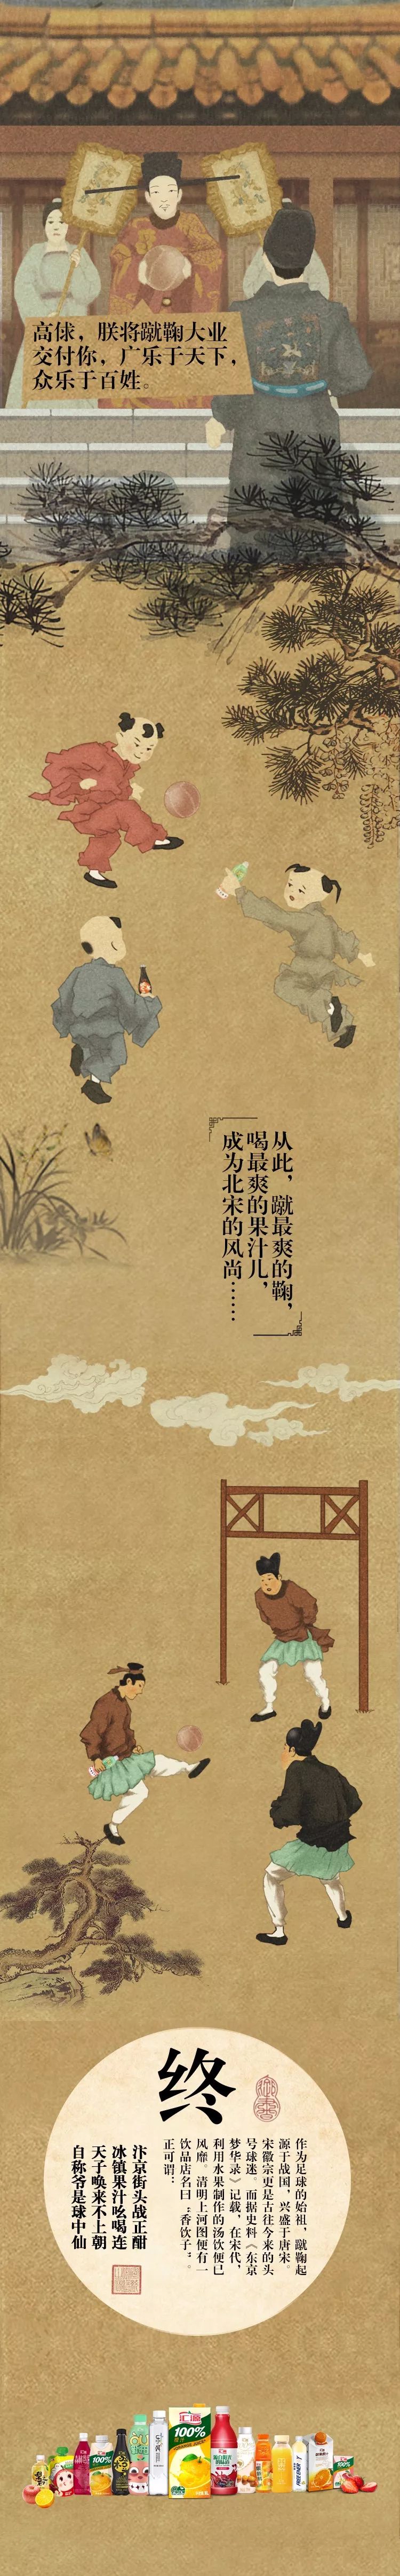 高俅，朕将蹴鞠大业
交付你，广乐于天下，
众乐于百姓。
从此，蹴最爽的鞠，
喝最爽的果汁儿，
成为北宋的风尚……
终
作为足球的始祖，蹴鞠起
源于战国，兴盛于唐宋。
宋徽宗更是古往今来的头
号球迷。而据史料《东京
梦华录》记载，在宋代，
利用水果制作的汤饮便已
风靡。清明上河图便有一
饮品店名曰“香饮子”。
正可谓：
汴京街头战正酣
冰镇果汁吆喝连
天子唤来不上朝
自称爷是球中仙
汇源
100%
100%
100%